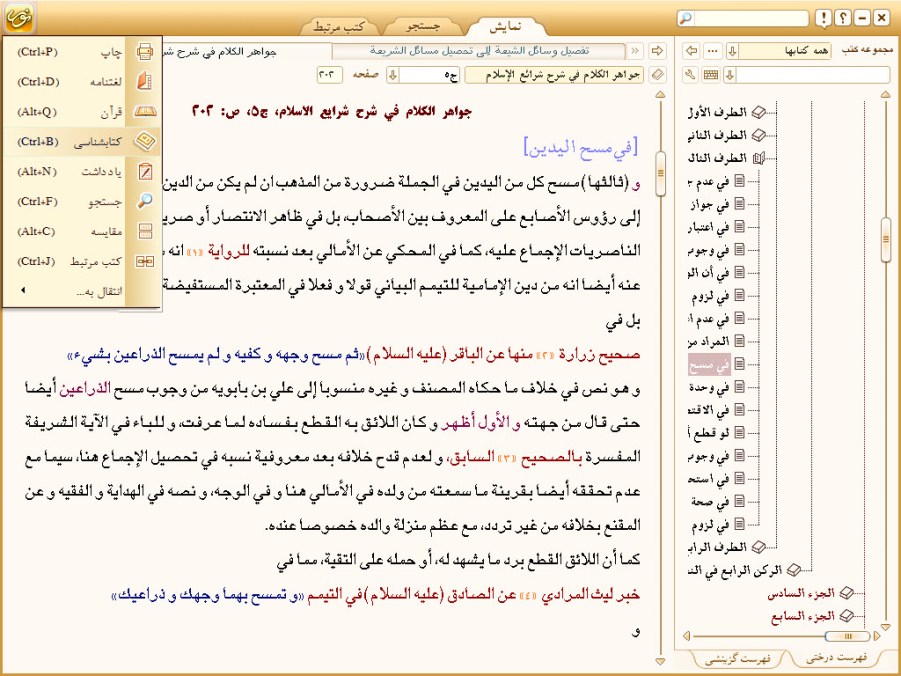 نمایش
جستجو
کتب مرتبط
مجموعه کتب
همه کتابها
تفصیل وسائل الشیعة إلی تحصیل مسائل الشریعة
جواهر الکلام في شرح
جواهر الکلام في شرح شرائع الإسلام
ج۵
صفحه
۲۰۲
چاپ (Ctrl+P)
لغتنامه (Ctrl+D)
قرآن (Alt+Q)
کتابشناسی (Ctrl+B)
یادداشت (Alt+N)
جستجو (Ctrl+F)
مقایسه (Alt+C)
کتب مرتبط (Ctrl+J)
انتقال به...
جواهر الکلام في شرح شرایع الاسلام، ج۵، ص: ۲۰۲
[في مسح الیدین]
و (ثالثها) مسح کل من الیدین في الجملة ضرورة من المذهب ان لم یکن من الدین
إلی رؤوس الأصابع علی المعروف بین الأصحاب، بل في ظاهر الانتصار أو
الناصریات الإجماع علیه، کما في المحکي عن الأمالي بعد نسبته للروایة «۱» انه
عنه أیضا انه من دین الإمامیة للتیمم البیاني قولا و فعلا في المعتبرة المستفیضة
بل في
صحیح زرارة «۲» منها عن الباقر (علیه السلام) «ثم مسح وجهه و کفیه و لم یمسح الذراعین بشيء»
و هو نص في خلاف ما حکاه المصنف و غیره منسوبا إلی علي بن بابویه من وجوب مسح الذراعین أیضا
حتی قال من جهته و الأول أظهر و کان اللائق به القطع بفساده لما عرفت، و للباء في الآیة الشریفة
المفسرة بالصحیح «۳» السابق، و لعدم قدح خلافه بعد معروفیة نسبه في تحصیل الإجماع هنا، سیما مع
عدم تحققه أیضا بقرینة ما سمعته من ولده في الأمالي هنا و في الوجه، و نصه في الهدایة و الفقیه و عن
المقنع بخلافه من غیر تردد، مع عظم منزلة والده خصوصا عنده.
کما أن اللائق القطع برد ما یشهد له، أو حمله علی التقیة، مما في
خبر لیث المرادي «۴» عن الصادق (علیه السلام) في التیمم «و تمسح بهما وجهك و ذراعیك»
و
الطرف الأول
الطرف الثاني
الطرف الثال
في عدم ج
في جواز
في اعتبار
في وجوب
في أن الو
في لزوم
في عدم ا
المراد من
في مسح
في وحدة
في الاقتص
لو قطع أ
في وجوب
في استحـ
في صحة
في لزوم
الطرف الراب
الرکن الرابع في الن
الجزء السادس
الجزء السابع
فهرست درختی
فهرست گزینشی